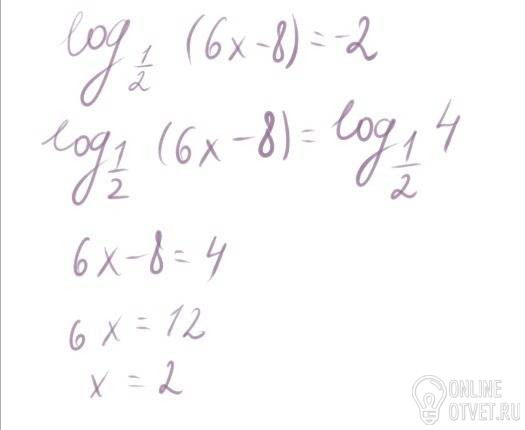 log_{1/2} (6x-8) = -2
log_{1/2} (6x-8) = log_{1/2} 4
6x-8 = 4
6x = 12
x = 2
ONLINE
OTVET.RU